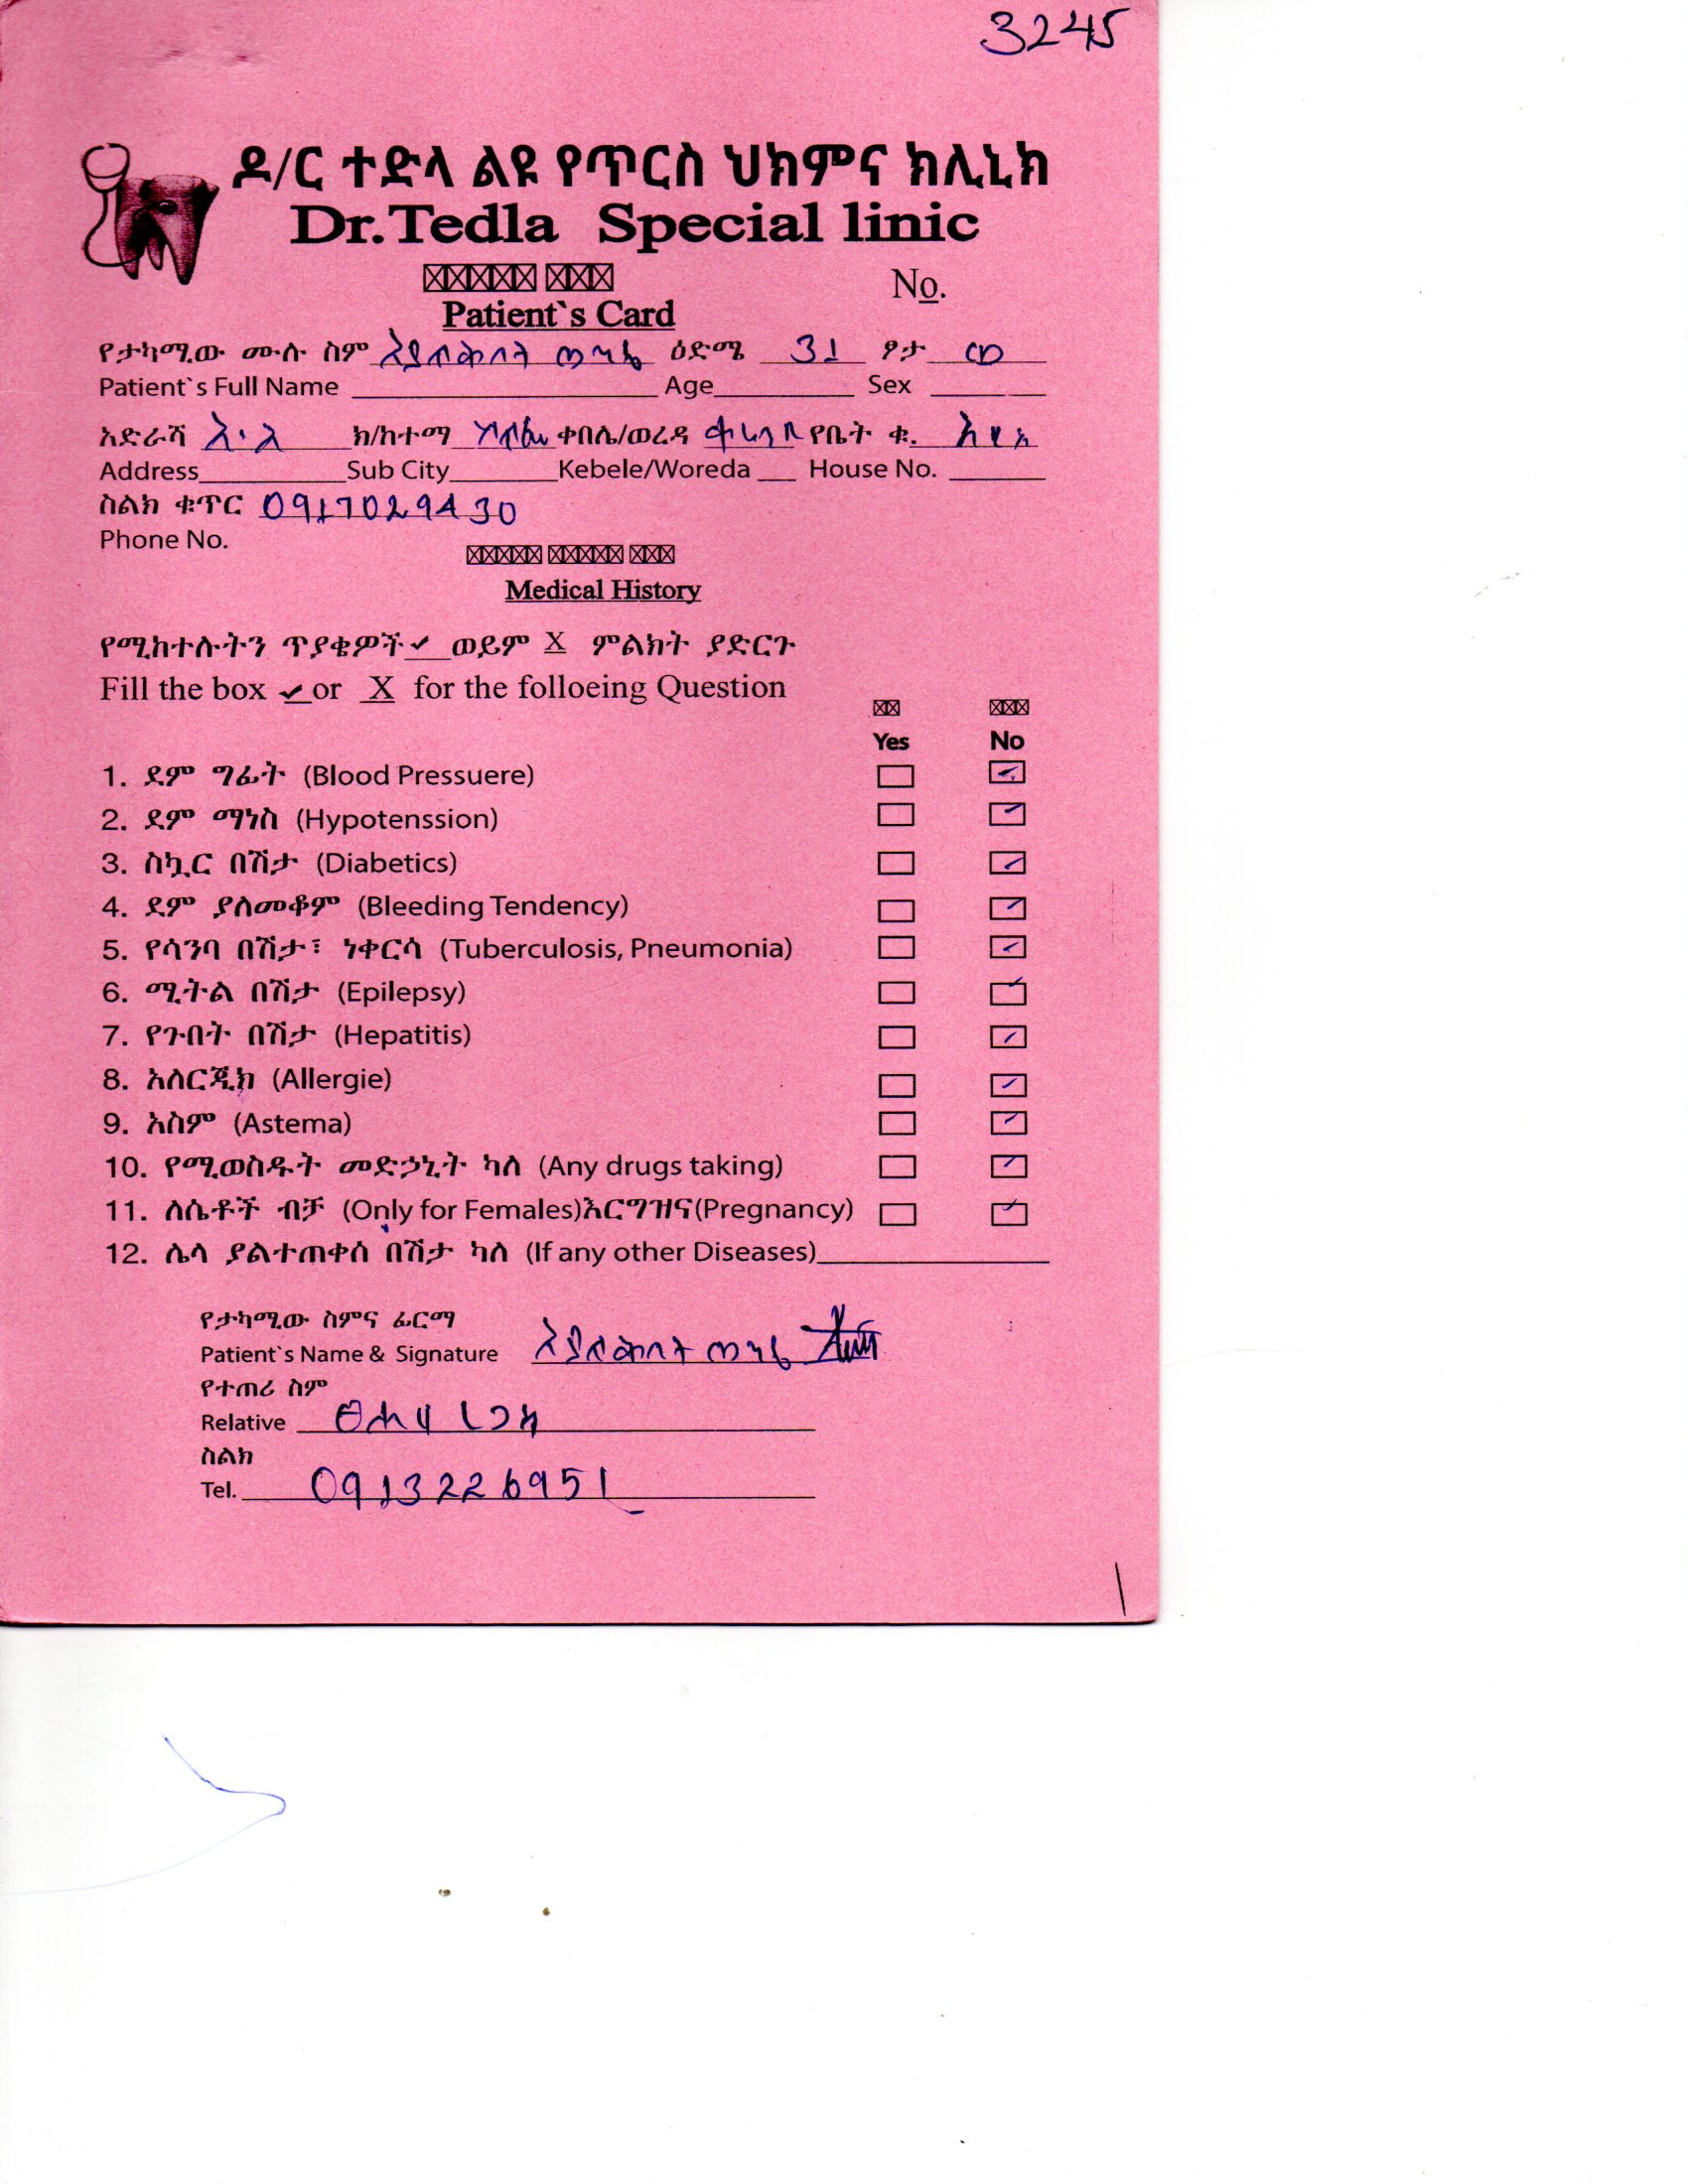 3245
ዶ/ር ተድላ ልዩ የጥርስ ህክምና ክሊኒክ
Dr.Tedla Special linic
No.
Patient`s Card
የታካሚው ሙሉ ስም ዕድሜ 31 ፆታ ወ
Patient`s Full Name Age Sex
አድራሻ አ.አ ክ/ከተማ ቀበሌ/ወረዳ የቤት ቁ.
Address Sub City Kebele/Woreda House No.
ስልክ ቁጥር 0917029430
Phone No.
Medical History
የሚከተሉትን ጥያቄዎች ✔ ወይም X ምልክት ያድርጉ
Fill the box ✔ or X for the folloeing Question
Yes No
1. ደም ግፊት (Blood Pressuere)
2. ደም ማነስ (Hypotenssion)
3. ስኳር በሽታ (Diabetics)
4. ደም ያለመቆም (Bleeding Tendency)
5. የሳንባ በሽታ፣ ነቀርሳ (Tuberculosis, Pneumonia)
6. ሚትል በሽታ (Epilepsy)
7. የጉበት በሽታ (Hepatitis)
8. አለርጂክ (Allergie)
9. አስም (Astema)
10. የሚወስዱት መድኃኒት ካለ (Any drugs taking)
11. ለሴቶች ብቻ (Only for Females)እርግዝና(Pregnancy)
12. ሌላ ያልተጠቀሰ በሽታ ካለ (If any other Diseases)
የታካሚው ስምና ፊርማ
Patient`s Name & Signature
የተጠሪ ስም
Relative
ስልክ
Tel. 0913226951